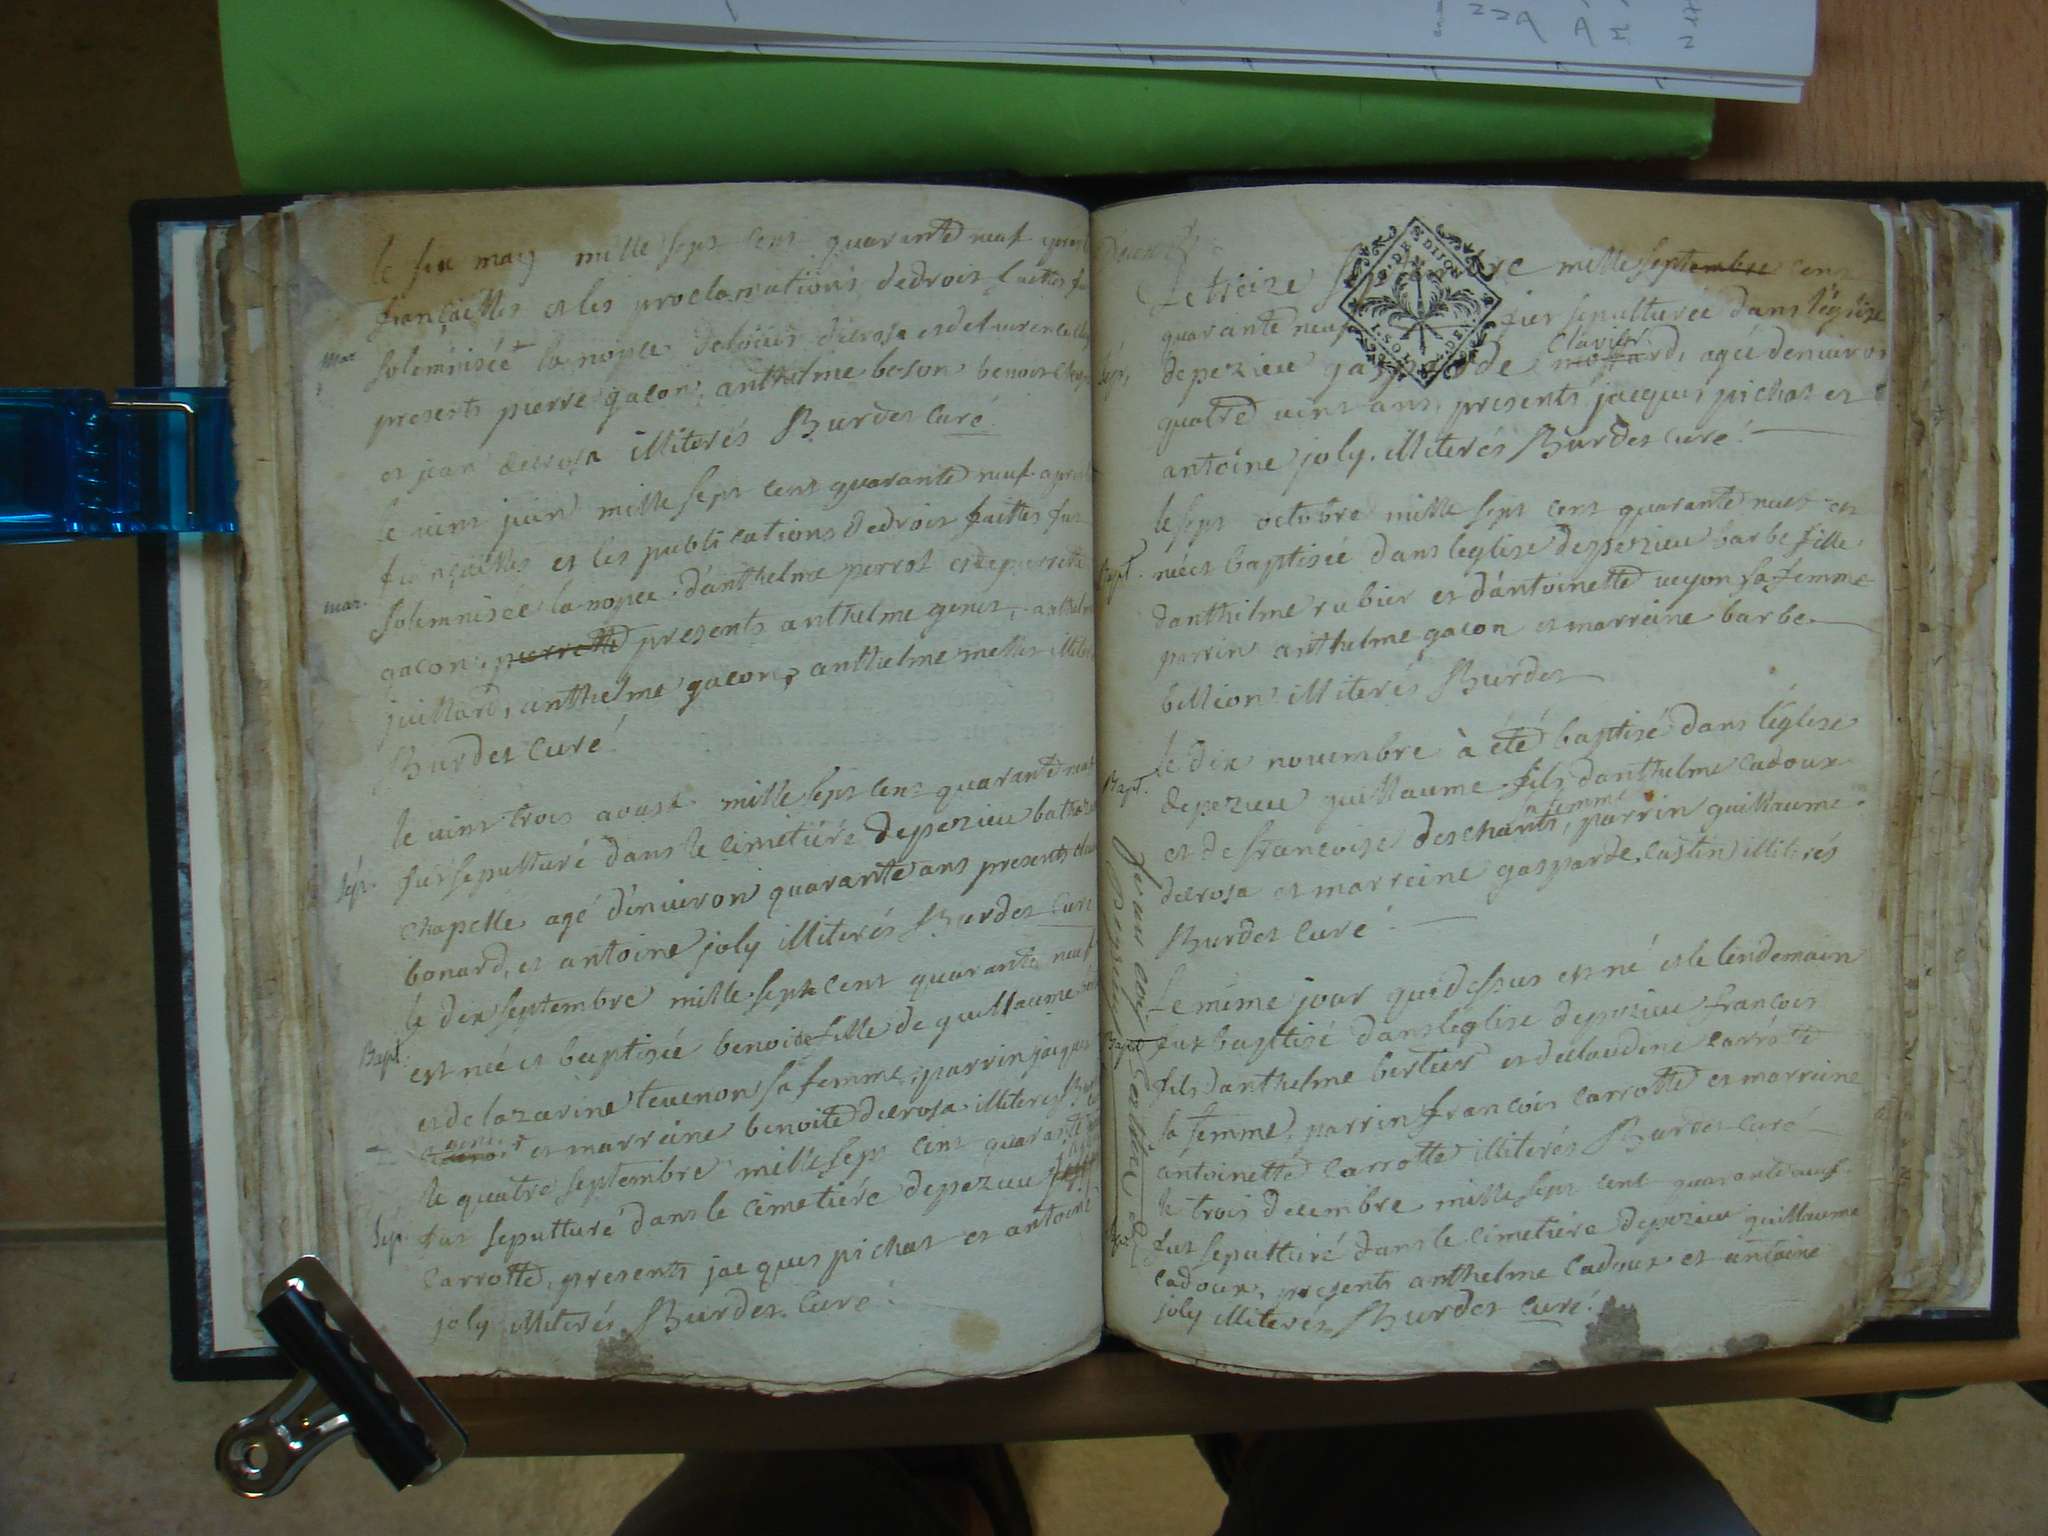 le six may mille sept cent quarante neuf
fiançailles et les proclamations de droit faittes fut
Mar.
solemnisée la nopce de loüis derosa et de laurence
presents pierre gacon, anthelme beson benoit
et jean derosa illiterés Burdet curé
le vint juin mille sept cent quarante neuf apres les
fiançailles et les publications de droit faittes fut
mar.
solemnisée la nopce d'anthelme perrot et de pierrette
gacon, pierrette presents anthelme genet, anthelme
juillard, anthelme gacon, anthelme mettes
Burdet curé
le vint trois aoust mille sept cent quarante neuf
Sép.
fut sepulturé dans le cimetiére de pezieu
chapelle agé d'enuiron quarante ans presents
bonard, et antoine joly illiterés Burdet curé
le dix septembre mille sept cent quarante neuf
Bapt.
est née et baptisée benoite fille de guillaume
et de lazarine teuenon sa femme, parrin jacques
genet et marreine benoite derosa illiterés
le quatre septembre mille sept cent quarante
Sép.
fut sepulturé dans le cimetiére de pezieu
Carrotte, presents jacques pichat et antoine
joly illiterés Burdet curé
Le treize mille septembre cent
quarante neuf fut sepulturée dans l'église
Sép.
clavier
de pezieu gasparde agée d'enuiron
quatre uint ans, presents jacques pichat et
antoine joly. illiterés Burdet curé
le sept octobre mille sept cent quarante neuf est
Bapt.
née et baptisée dans l'eglise de pezieu barbe fille
d'anthelme rubier et d'antoinette ueyon sa femme
parrin anthelme gacon et marreine barbe
billion illiterés Burdet
le dix nouembre à été baptisé dans l'église
Bapt.
de pezieu guillaume fils d'anthelme cadoux
sa femme
et de françoise deschants, parrin guillaume
derosa et marreine gasparde castin illiterés
Burdet curé
Le même jour que dessus est né et le lendemain
Bapt.
fut baptisé dans l'église de pezieu françois
fils d'anthelme bertier et de claudine carrotte
sa femme, parrin françois carrotte et marreine
antoinette carrotte illiterés Burdet curé
le trois decembre mille sept cent quarante neuf
Sép.
fut sepulturé dans le cimetiére de pezieu guillaume
cadoux, presents anthelme cadoux et antoine
joly illiterés Burdet curé